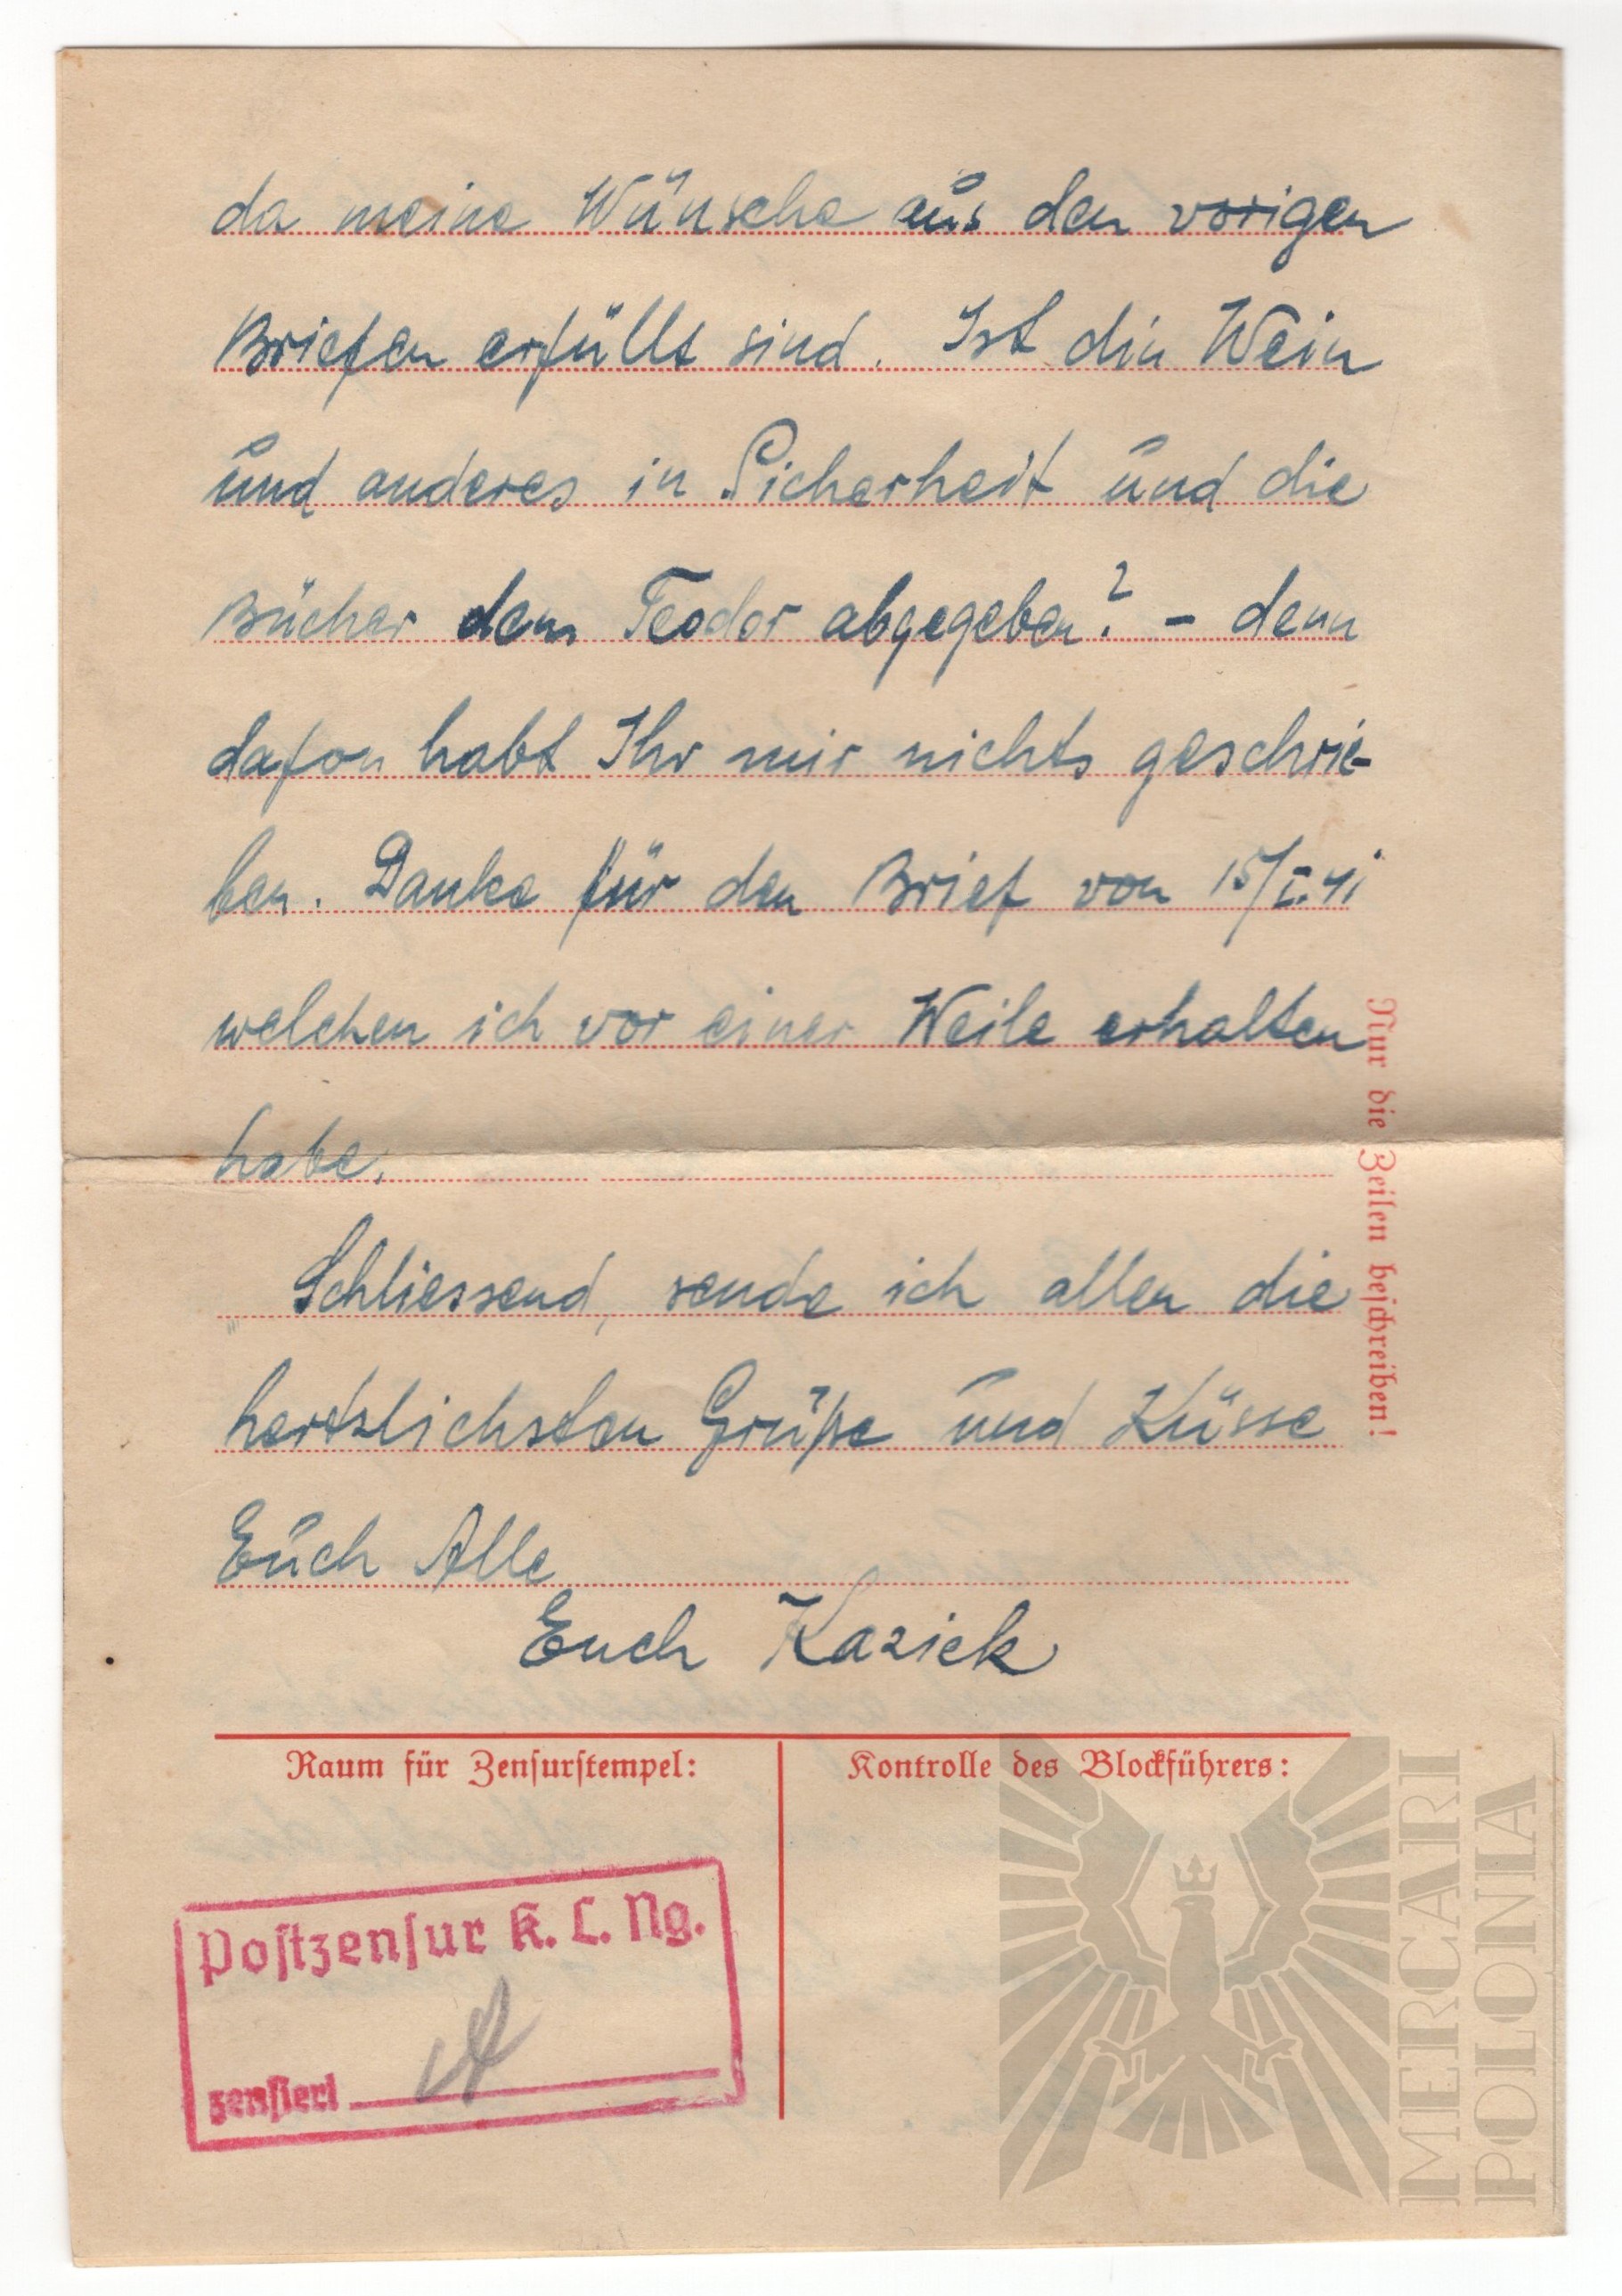 da meine Wünsche aus den vorigen
Briefen erfüllt sind. Ist din Wein
und anderes in Sicherheit und die
Bücher dem Teodor abgegeben? - denn
dafon habt Ihr mir nichts geschrie-
ben. Danke für den Brief von 15/I.41
welchen ich vor einer Weile erhalten
habe.
Schliessend, sende ich allen die
hertzlichsten Grüße und Küsse
Euch Alle
Euch Kaziek
Nur die Zeilen beschreiben!
Raum für Zensurstempel:
Kontrolle des Blockführers:
Postzensur K. L. Ng.
zensiert
MERCARI
POLONIA